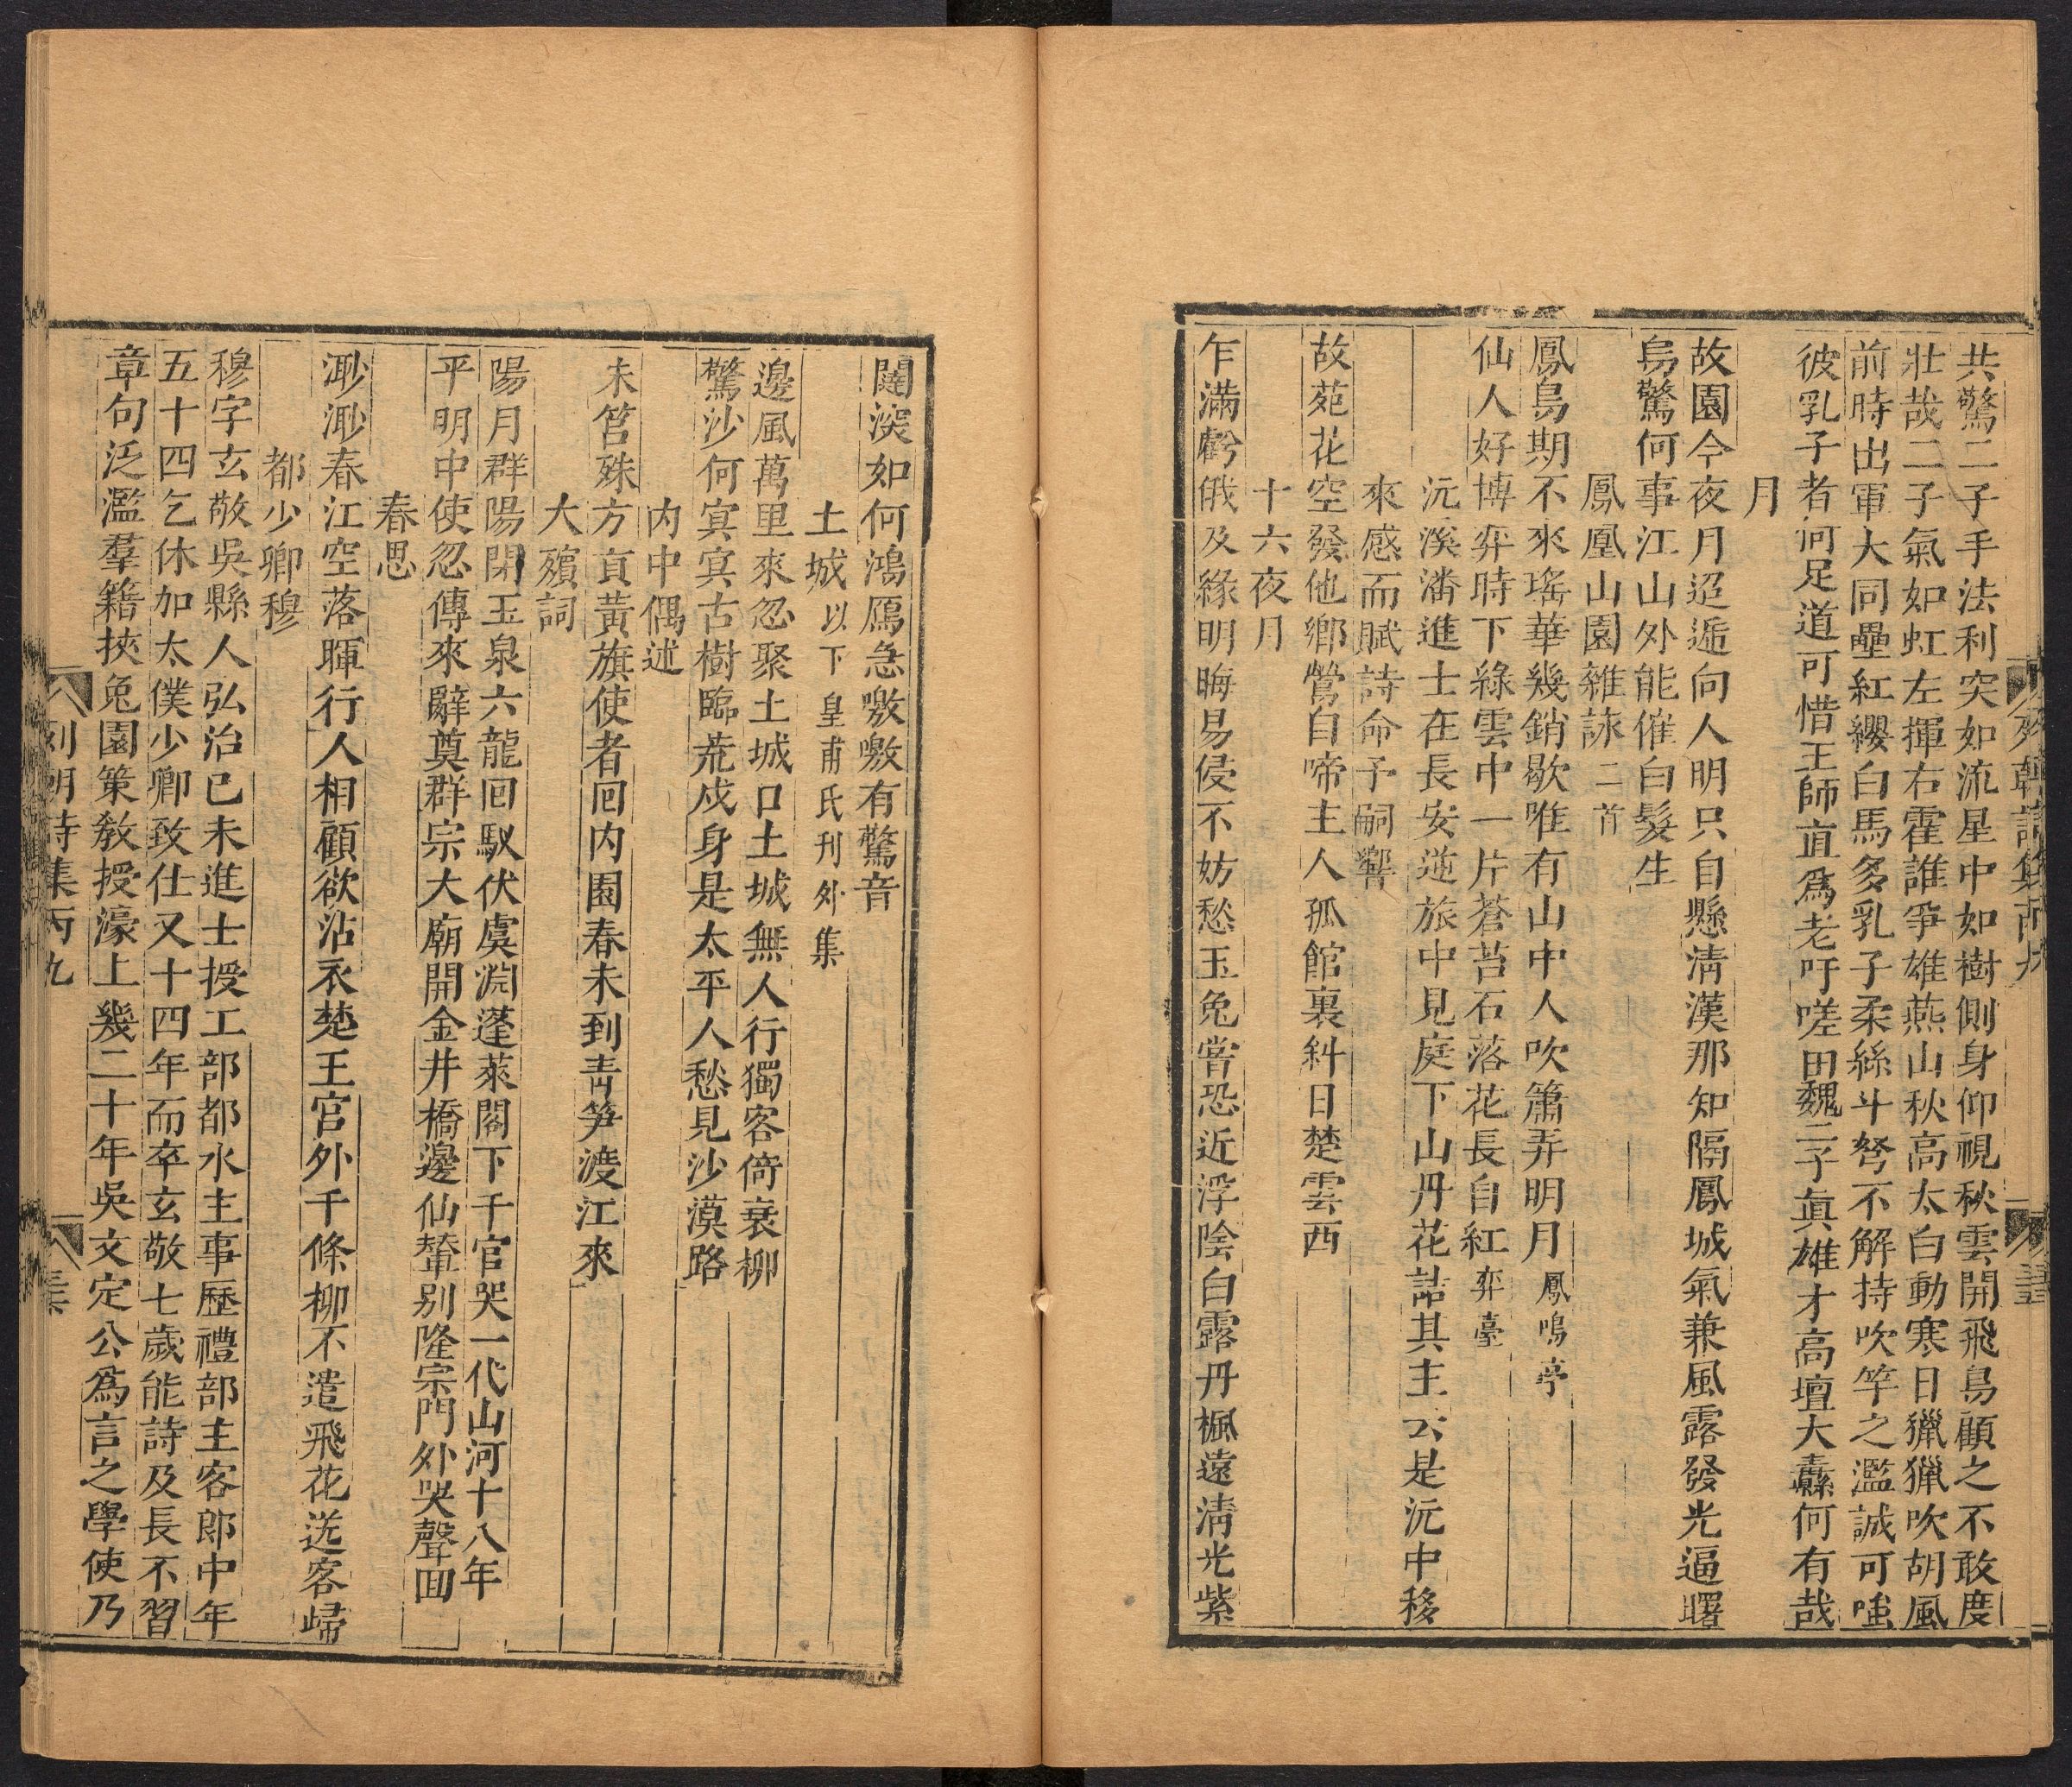 共驚二子手法利突如流星中如樹側身仰視秋雲開飛鳥顧之不敢度
壯哉二子氣如虹左揮右霍誰爭雄燕山秋高太白動寒日獵獵吹胡風
前時出軍大同壘紅纓白馬多乳子柔絲斗弩不解持吹竽之濫誠可嗤
彼乳子者何足道可惜王師直為老吁嗟田魏二子真雄才高壇大纛何有哉
月
故園今夜月迢遞向人明只自懸清漢那知隔鳳城氣兼風露發光逼曙
烏驚何事江山外能催白髮生
鳳凰山園雜詠二首
鳳鳥期不來瑤華幾銷歇唯有山中人吹簫弄明月鳳鳴亭
仙人好博弈時下綠雲中一片蒼苔石落花長自紅弈臺
沅溪潘進士在長安逆旅中見庭下山丹花詰其主云是沅中移
來感而賦詩命予嗣響
故苑花空發他鄉鶯自啼主人孤館裏斜日楚雲西
十六夜月
乍滿虧俄及緣明晦易侵不妨愁玉兔嘗恐近浮陰白露丹楓遠清光紫
列朝詩集丙九
闥深如何鴻鴈急嗷嗷有驚音
土城以下皇甫氏刊外集
邊風萬里來忽聚土城口土城無人行獨客倚衰柳
驚沙何冥冥古樹臨荒戍身是太平人愁見沙漠路
內中偶述
未筥殊方貢黃旗使者回內園春未到青笋渡江來
大殯詞
陽月群陽閉玉泉六龍回馭伏虞淵蓬萊閣下千官哭一代山河十八年
平明中使忽傳來辭奠群宗大廟開金井橋邊仙輦別隆宗門外哭聲回
春思
渺渺春江空落暉行人相顧欲沾衣楚王宮外千條柳不遣飛花送客歸
都少卿穆
穆字玄敬吳縣人弘治己未進士授工部都水主事歷禮部主客郎中年
五十四乞休加太僕少卿致仕又十四年而卒玄敬七歲能詩及長不習
章句泛濫羣籍挾兔園策教授濠上幾二十年吳文定公為言之學使乃
列朝詩集丙九